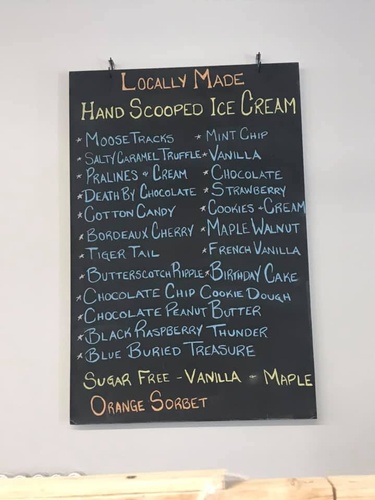 Locally Made
Hand Scooped Ice Cream
* Moose Tracks * Mint Chip
* Salty Caramel Truffle * Vanilla
* Pralines & Cream * Chocolate
* Death By Chocolate * Strawberry
* Cotton Candy * Cookies & Cream
* Bordeaux Cherry * Maple Walnut
* Tiger Tail * French Vanilla
* Butterscotch Ripple * Birthday Cake
* Chocolate Chip Cookie Dough
* Chocolate Peanut Butter
* Black Raspberry Thunder
* Blue Buried Treasure
Sugar Free - Vanilla - Maple
Orange Sorbet